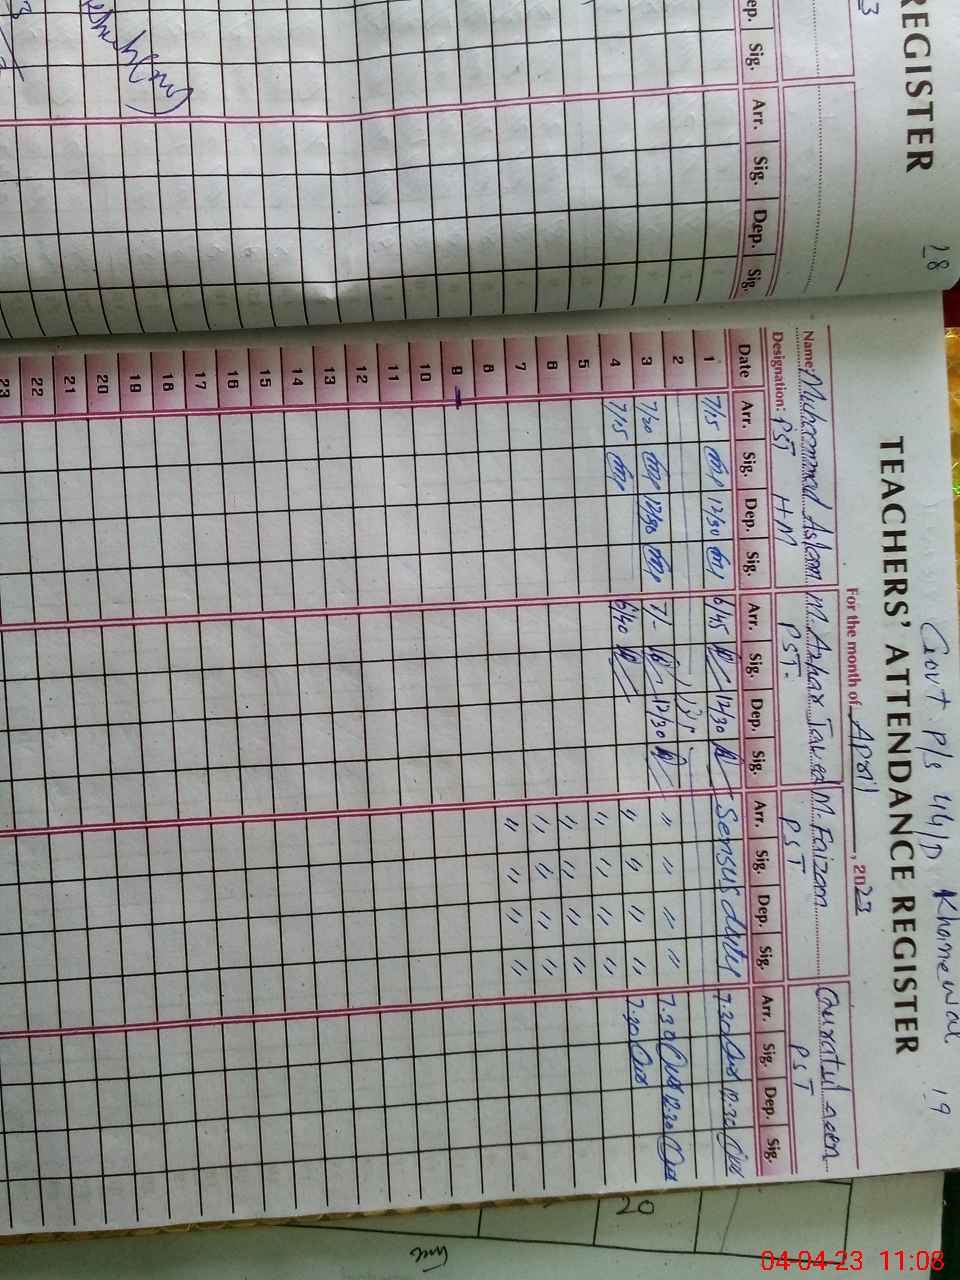 REGISTER
18
Arr. Sig. Dep. Sig.
Govt. P/S 44/D Khanewal
19
TEACHERS' ATTENDANCE REGISTER
For the month of April, 2023
Name: Muhammad Aslam M. Azhar Javed M. Faizan Quratul aeen
Designation: PST HM PST. PST PST
Date Arr. Sig. Dep. Sig. Arr. Sig. Dep. Sig. Arr. Sig. Dep. Sig. Arr. Sig. Dep. Sig.
1 7/15 12/30 6/45 12/30 Sensus duty 7.30 12.30
2 " " " "
3 7/20 12/30 7/- 12/30 " " " " 7.30 12.30
4 7/15 6/40 " " " " 7.30
5 " " " "
6 " " " "
7 " " " "
8
9
10
11
12
13
14
15
16
17
18
19
20
21
22
23
20
04-04-23 11:08